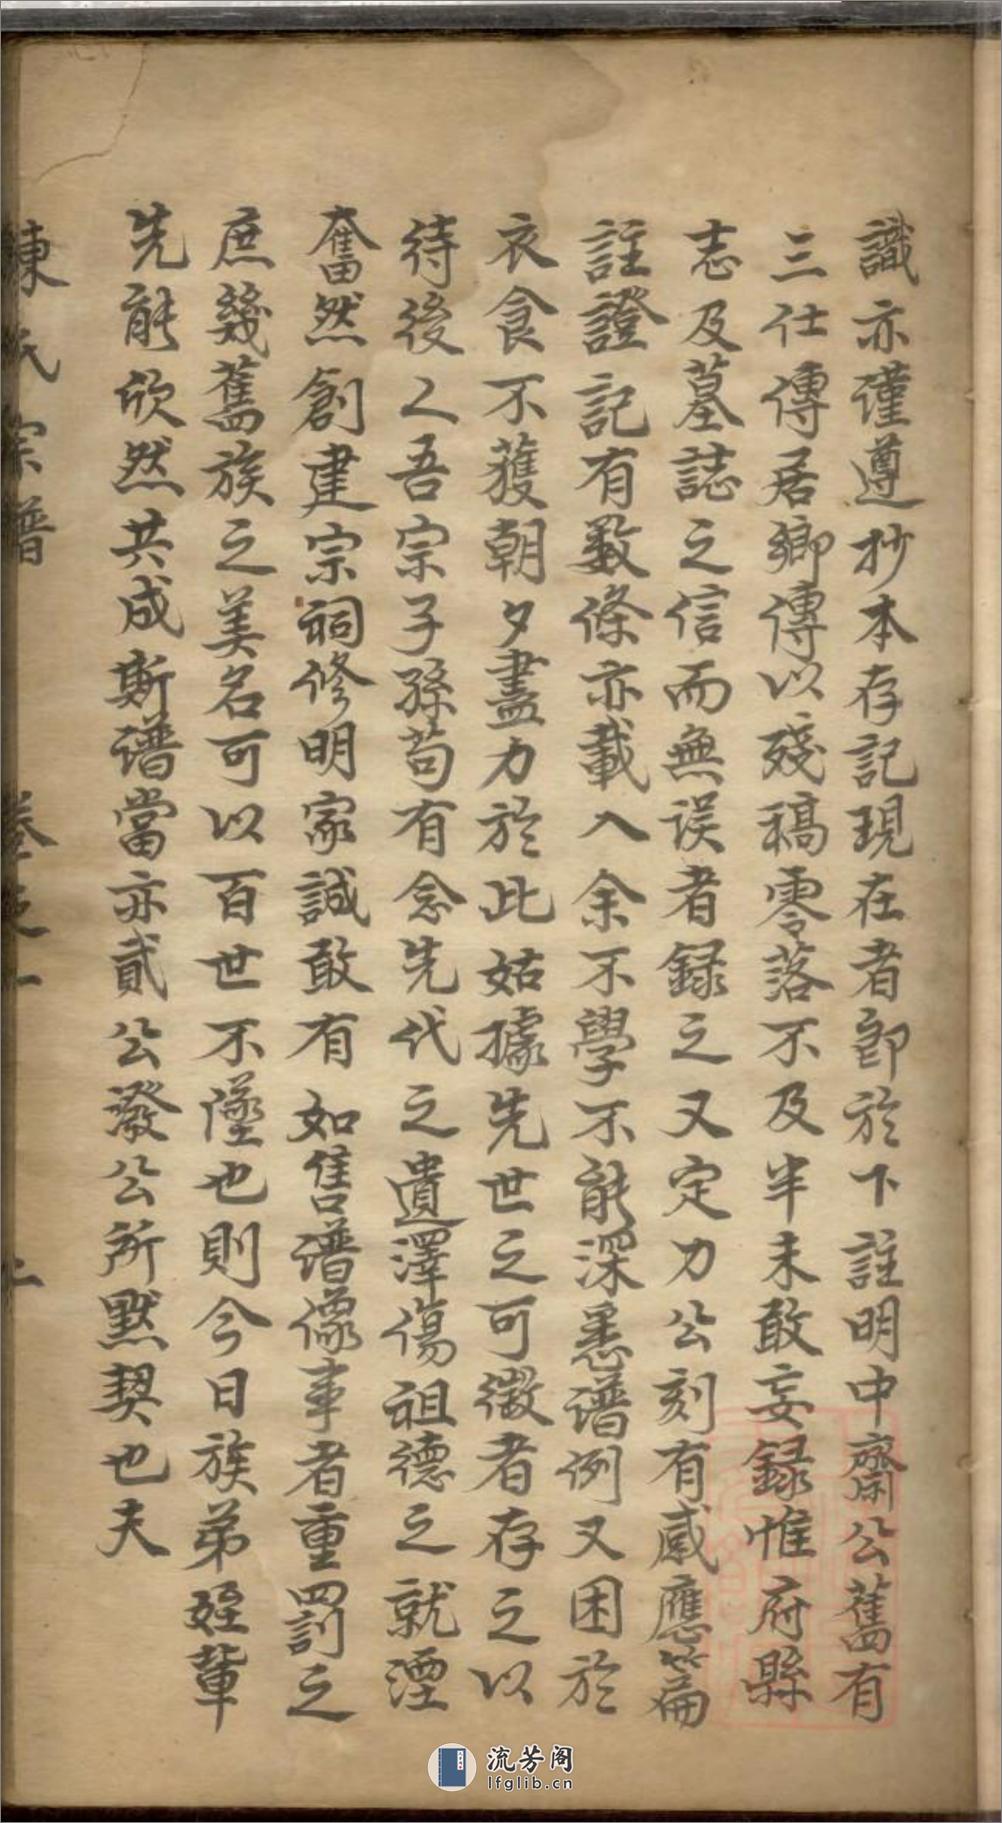 識亦謹遵抄本存記現在者即於下註明中齋公舊有
三仕傳居鄉傳以殘稿零落不及半未敢妄録惟府縣
志及墓誌之信而無误者録之又定力公刻有感應篇
註證記有數條亦載入余不學不能深悉谱例又困於
衣食不獲朝夕盡力於此姑據先世之可徵者存之以
待後之吾宗子孫苟有念先代之遺澤傷祖德之就湮
奮然創建宗祠修明家誡敢有如售谱像事者重罰之
庶幾舊族之美名可以百世不墜也則今日族弟姪輩
先能欣然共成斯谱當亦貳公潑公所默契也夫
氏宗譜
流芳阁
lfglib.cn